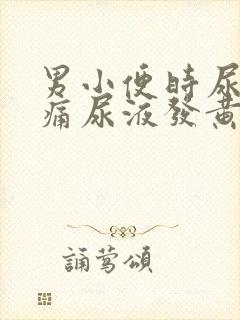 男小便時尿
痛尿液發黃
誦鶯頌